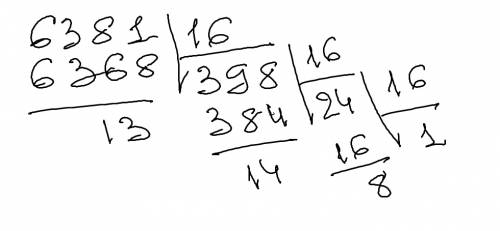 6381 16
6368 398 16
13 384 24 16
14 16 1
8